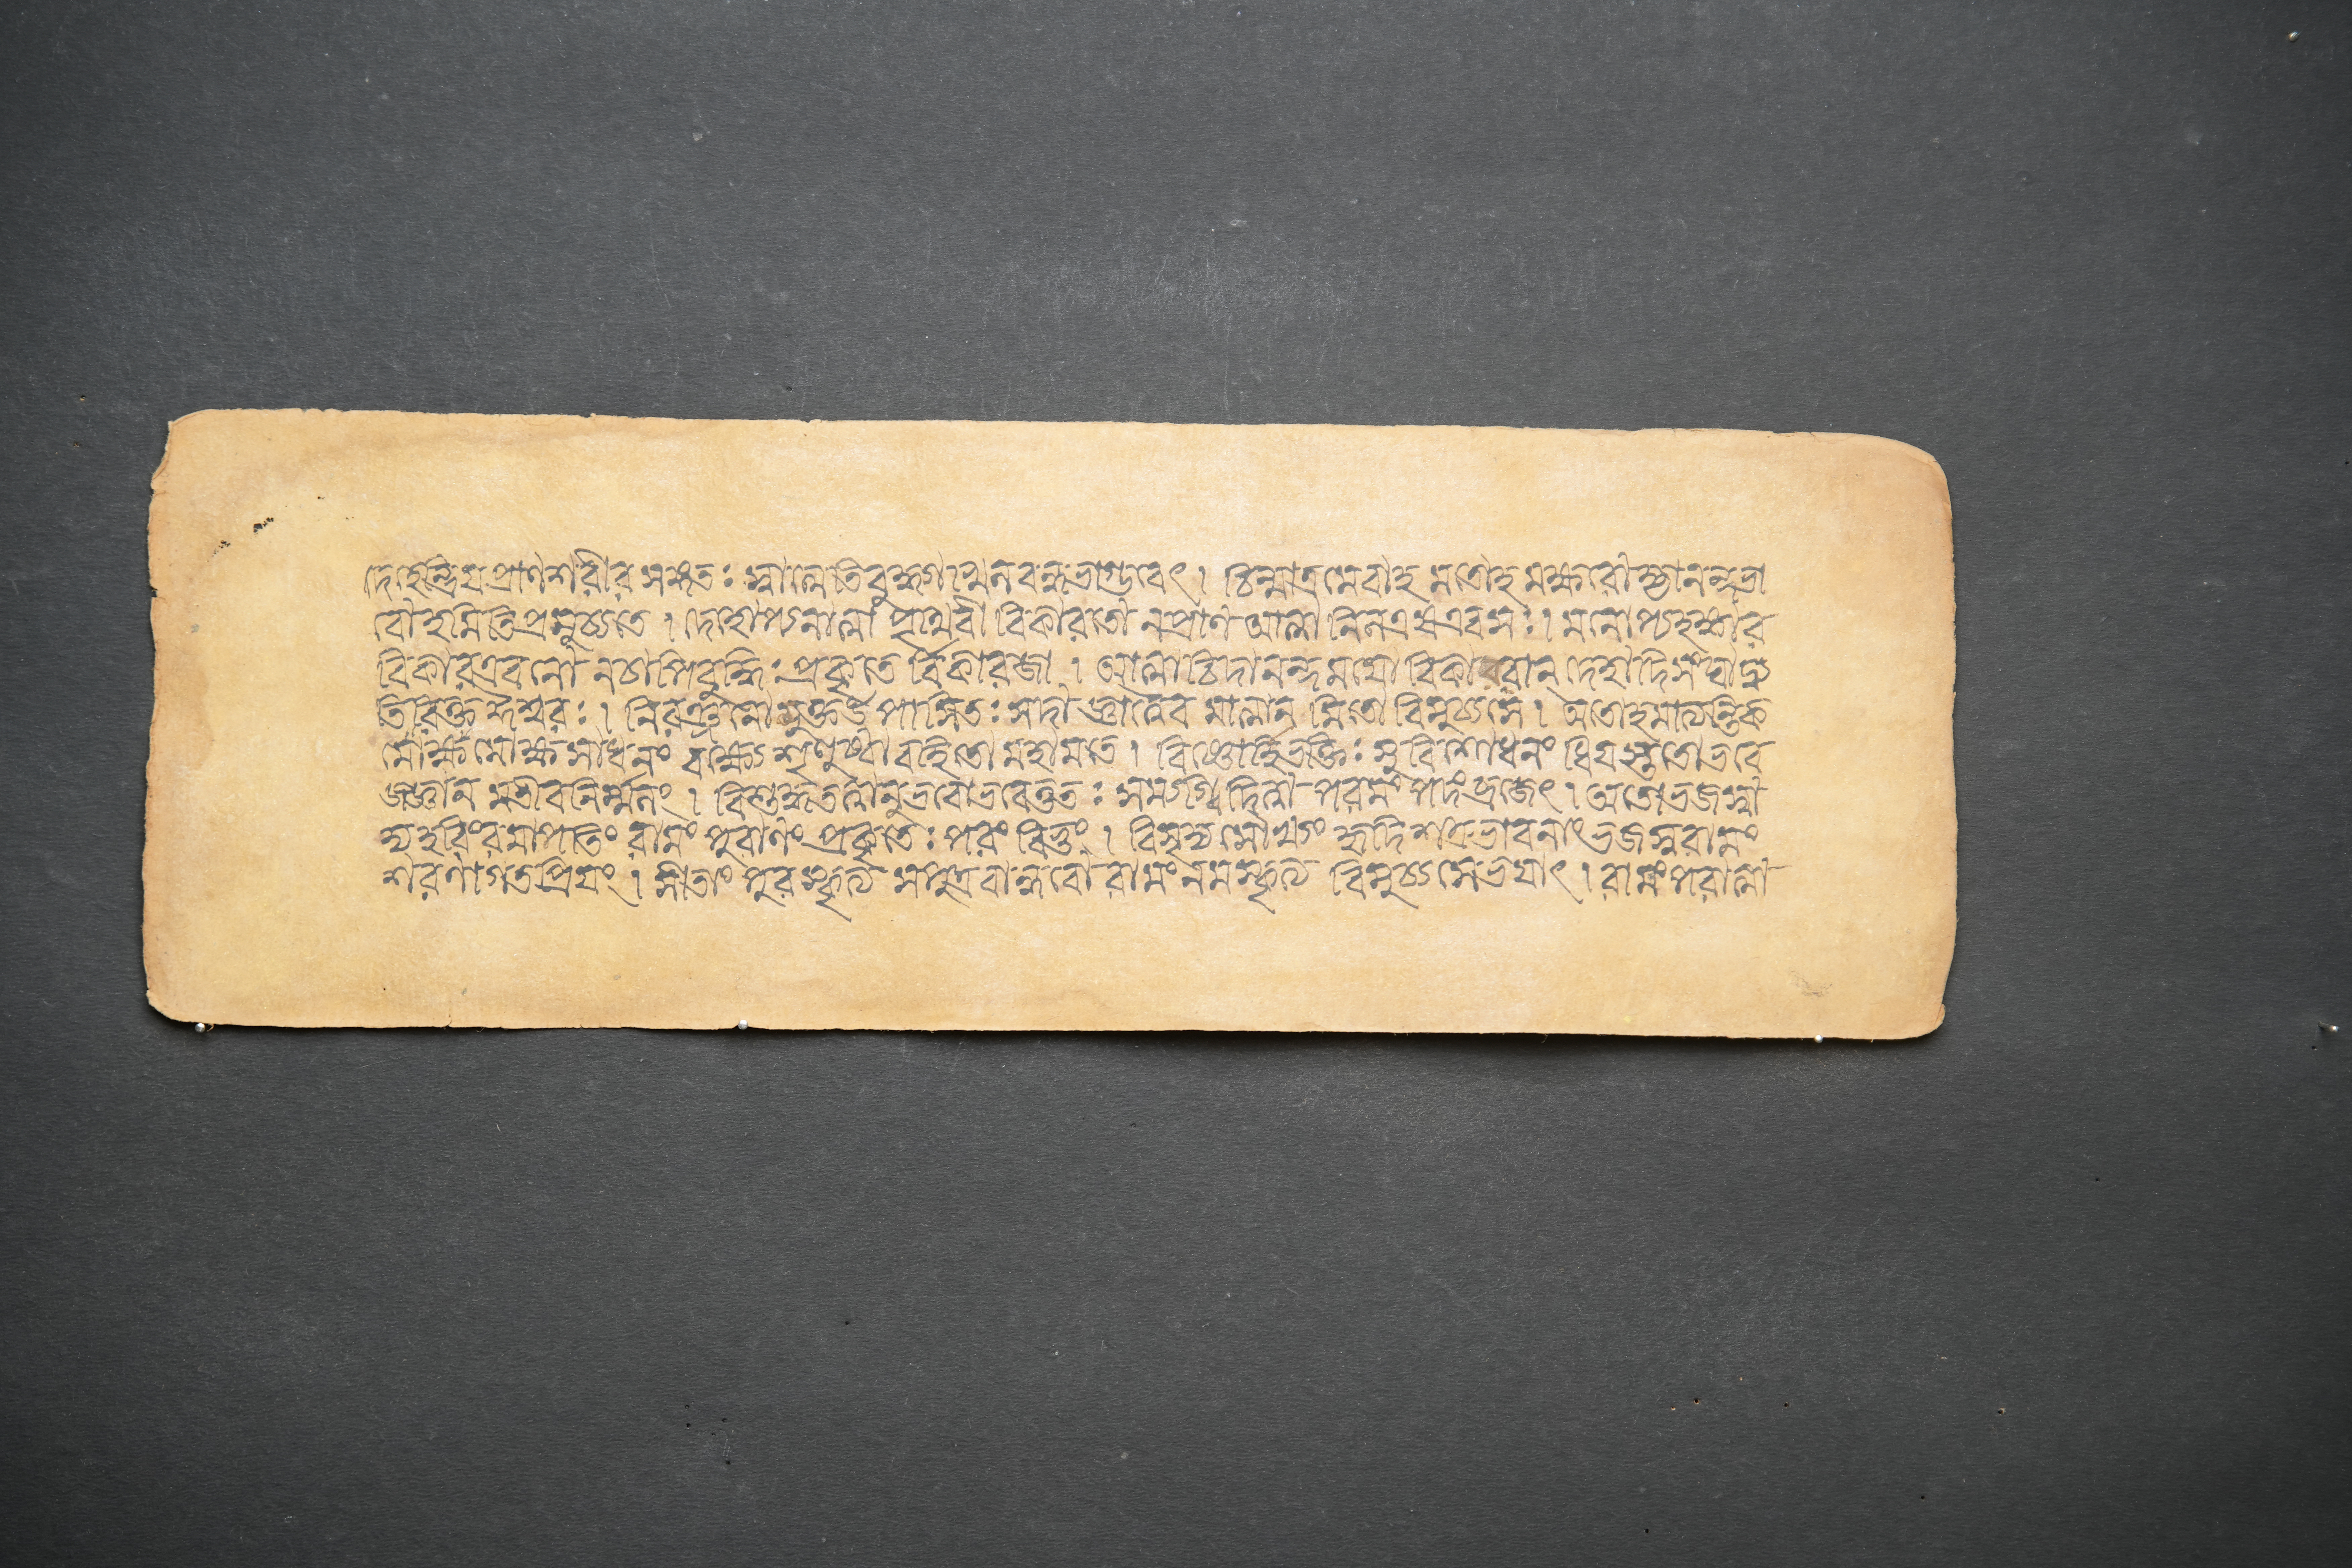 দেহেন্দ্রিয়প্রাণশরীর সঙ্গতঃ স্বাত্মেতিবুদ্ধ্যাখিলবন্ধভাগ্ভবেৎ। চিন্মাত্রমেবাহ মজোহ মক্ষরোহ্যানন্দভা
বোহমিতিপ্রমুচ্যতে। দেহোপ্যনাত্মা পৃথিবী বিকারজো নপ্রাণ আত্মা নিলএষএবসঃ। মনোপ্যহঙ্কার
বিকারএবনো নচাপিবুদ্ধিঃ প্রকৃতে র্বিকারজা। আত্মা চিদানন্দময়ো বিকারবান্ দেহাদিসংঘাদ্ব্য
তিরিক্ত ঈশ্বরঃ। নিরঞ্জনো মুক্তউপাধিতঃ সদা জ্ঞাত্বৈব মাত্মান মিতো বিমুচ্যসে। অতোহমাত্যন্তিক
মোক্ষ সাধনং বক্ষ্যে শৃণুষ্বাবহিতো মহামতে। বিষ্ণোর্হিভক্তিঃ সুবিশোধনং ধিয়স্ততোভবে
জ্জ্ঞান মতীবনির্ম্মলং। বিশুদ্ধতত্ত্বানুভবোভবেত্ততঃ সম্যগ্বিদিত্বা পরমং পদং ব্রজেৎ। অতোভজস্বা
দ্যহরিংরমাপতিং রামং পুরাণং প্রকৃতেঃ পরং বিভুং। বিসৃজ্য মৌর্খ্যং হৃদি শত্রুভাবনাং ভজস্বরামং
শরণাগতপ্রিয়ং। সীতাং পুরস্কৃত্য সপুত্রবান্ধবো রামং নমস্কৃত্য বিমুচ্যসেভয়াৎ। রামংপরাত্মা